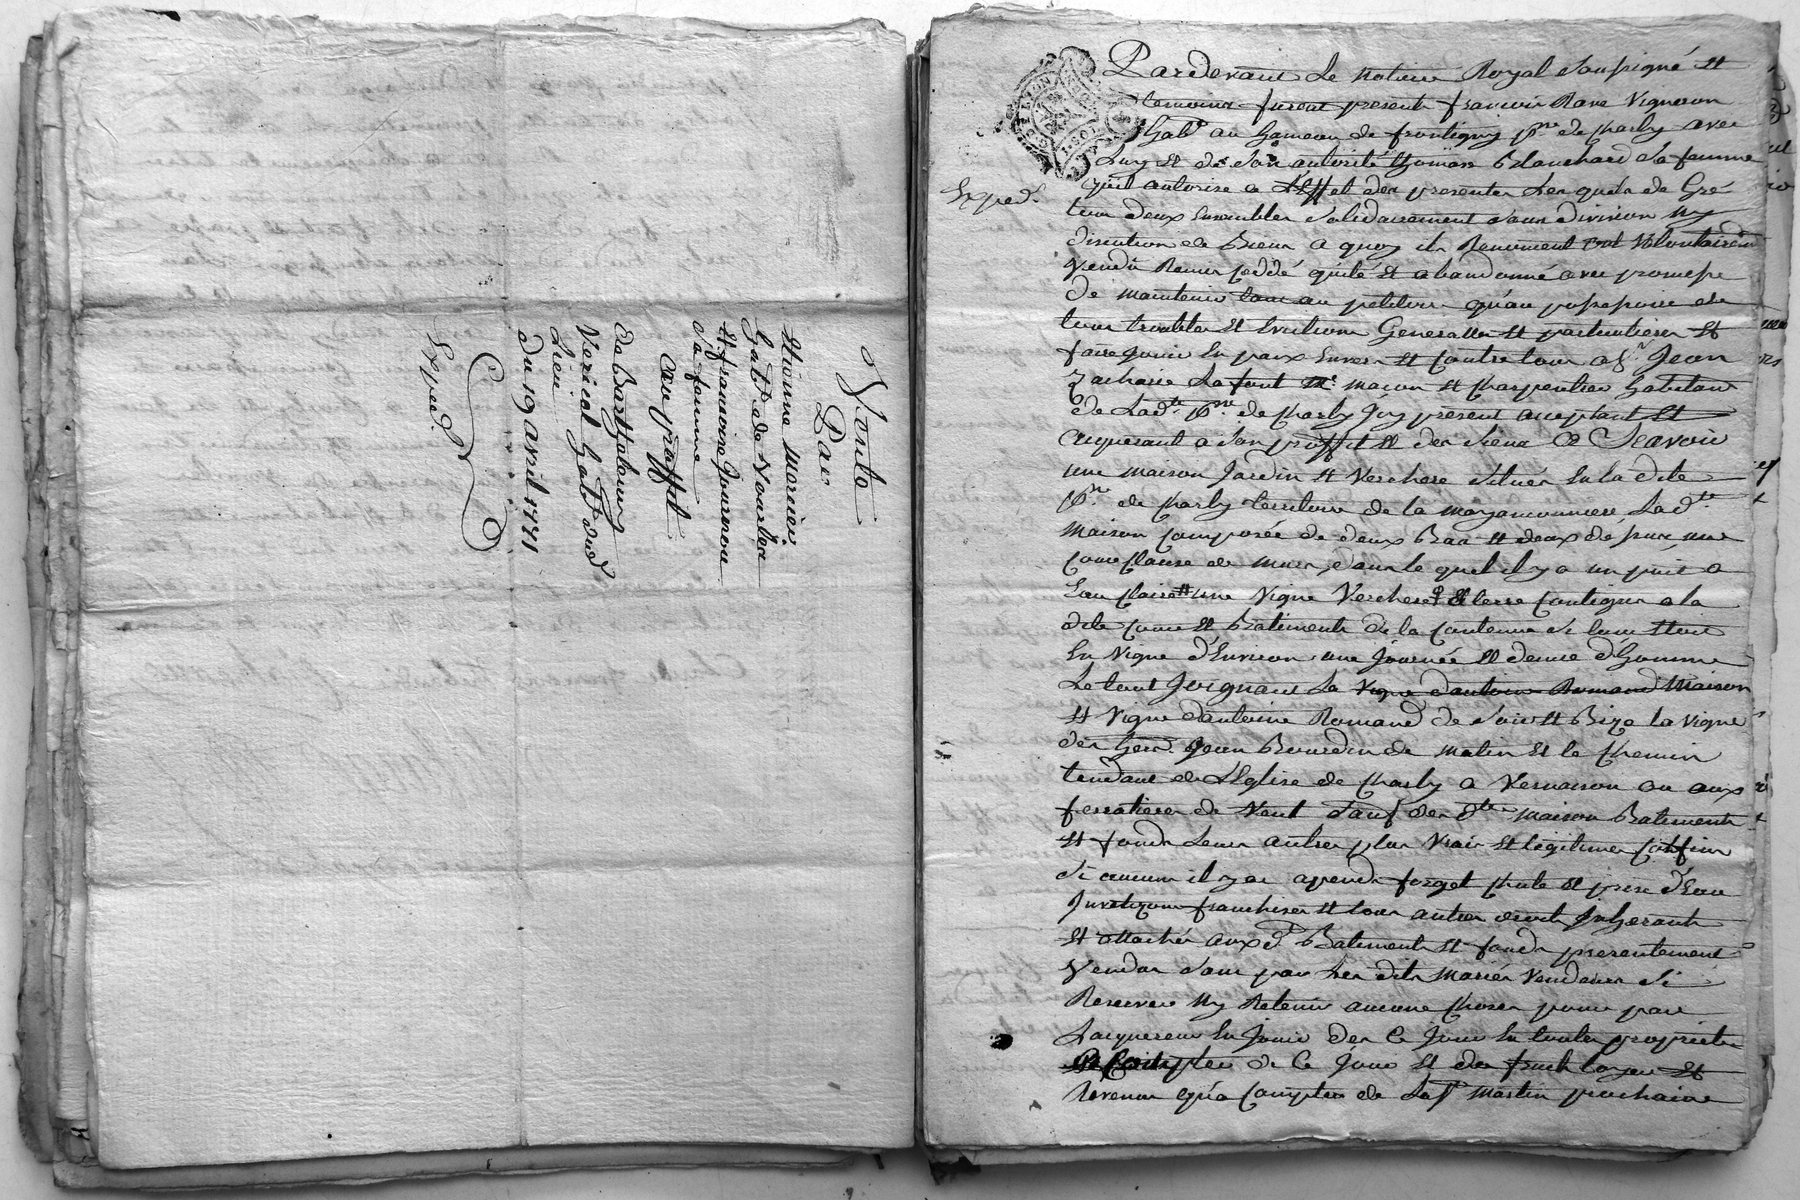 Vente
Par
Etienne morier
habt de Vourles
et francoise Gourenou
sa femme
au proffit
de Barthelemy
Vericel habt dud
Lieu
du 19 avril 1771
Exped.
Pardevant Le notaire Royal soussigné et
temoins furent presents francois Rave Vigneron
habt au hameau de frontigny psse de charly avec
Luy et de son autorité thomas Blanchard sa femme
qu'il autorise a L'effet des presentes Lesquels de Gré
Exped.
tous deux Ensembles solidairement sans division ny
discution de Biens a quoy ils Renoncent ont volontairemt
vendu Remis ceddé quité et abandonné avec promesse
de maintenir tant au petitoire qu'au possessoire de
tous troubles et Evictions Generalles et particulieres et
faire jouir En paix Envers et contre tous a Sr Jean
Zacharie Lafont me macon et charpentier habitant
de Ladte psse de charly icy present acceptant et
acquerant a son proffit et des siens a Scavoir
une maison Jardin et Verchere situés En la dite
psse de charly territoire de la Lad. te
maison composée de deux Bas et deux dessus, une
cour Clause de murs, dans le quel il y a un puit a
Eau claire et une vigne Verchere et terre contigus a la
dite cour et Batiments de la contenue si
En vigne d'Environ une Journée et demie d'homme
Le tout Joignant La vigne d'antoine Romand maison
et vigne d'antoine Romand de soir et Bize la vigne
des hers Jean Bourdin de matin et le chemin
tendant de L'Eglise de charly a Vernaison ou aux
ferratieres de Vent sauf desdtes maison Batiments
et fonds Leurs autres plus vrais et légitimes confins
si aucuns il y a chute et prise d'Eau
franchises et tous autres droits inherants
et attachés auxd. Batiments et fonds presentement
vendus sans par Les dits mariés vendeurs si
Reserver ny Retenir aucune choses pour par
Lacquereur En Jouir des ce Jour En toutes proprietés
a compter de ce Jour et des fruits Loyers et
Revenus qu'a compter de La St martin prochaine